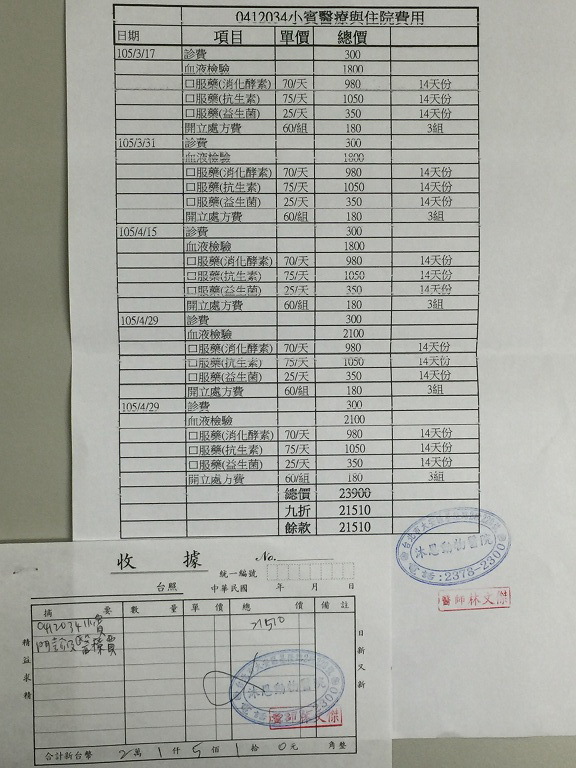 0412034小賓醫療與住院費用
日期 項目 單價 總價
105/3/17 診費 300
血液檢驗 1800
口服藥(消化酵素) 70/天 980 14天份
口服藥(抗生素) 75/天 1050 14天份
口服藥(益生菌) 25/天 350 14天份
開立處方費 60/組 180 3組
105/3/31 診費 300
血液檢驗 1800
口服藥(消化酵素) 70/天 980 14天份
口服藥(抗生素) 75/天 1050 14天份
口服藥(益生菌) 25/天 350 14天份
開立處方費 60/組 180 3組
105/4/15 診費 300
血液檢驗 1800
口服藥(消化酵素) 70/天 980 14天份
口服藥(抗生素) 75/天 1050 14天份
口服藥(益生菌) 25/天 350 14天份
開立處方費 60/組 180 3組
105/4/29 診費 300
血液檢驗 2100
口服藥(消化酵素) 70/天 980 14天份
口服藥(抗生素) 75/天 1050 14天份
口服藥(益生菌) 25/天 350 14天份
開立處方費 60/組 180 3組
105/4/29 診費 300
血液檢驗 2100
口服藥(消化酵素) 70/天 980 14天份
口服藥(抗生素) 75/天 1050 14天份
口服藥(益生菌) 25/天 350 14天份
開立處方費 60/組 180 3組
總價 23900
九折 21510
餘款 21510
沐恩動物醫院
電話:2378-2300
醫師林文傑
收據 No.
統一編號
台照 中華民國 年 月 日
摘要 數量 單價 總價 備註
0412034小賓 21510
門診及醫療費
精益求精
日新又新
沐恩動物醫院
醫師林文傑
合計新台幣 2萬 1仟 5佰 1拾 0元 角整